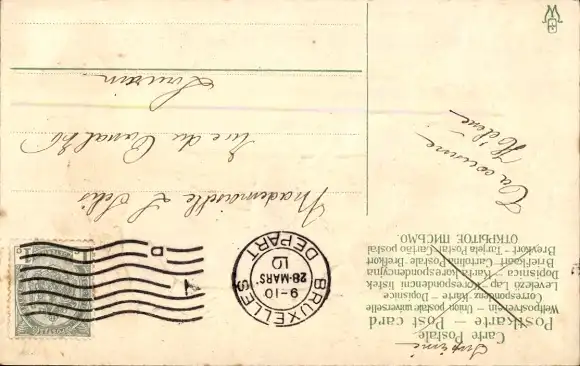 Imprimé
Carte Postale
Postkarte – Post card
Weltpostverein – Union postale universelle
Correspondenz Karte – Dopisnice
Levelező Lap – Korespondenční lístek
Dopisnica – Karta korespondencyjna
Briefkaart – Cartolina Postale – Brefkort
Brevkort – Tarjeta Postal – Cartão postal
ОТКРЫТОЕ ПИСЬМО.
BRUXELLES
9–10
28·MARS
DEPART
Mademoiselle L
Rue du Canal
Louvain
Ta cousine
Hélène